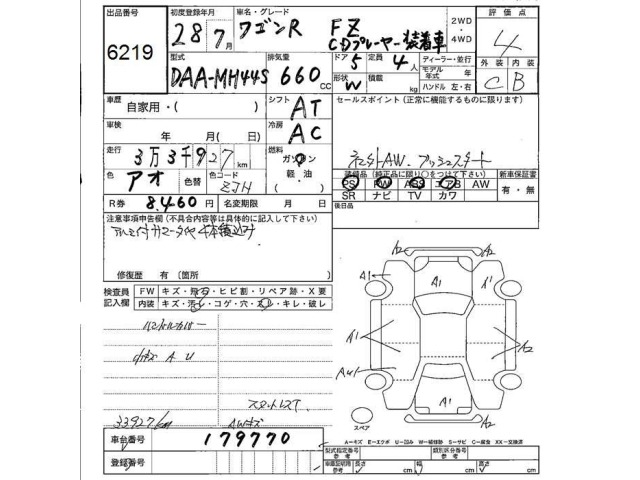 出品番号 初度登録年月 車名・グレード 2WD・4WD 評価点
6219 28年7月 ワゴンR FZ CDプレーヤー装着車 4
型式 排気量 ドア 定員 ディーラー・並行 外装 内装
DAA-MH44S 660cc 5 4人 モデル年式 年 C B
形状 W 積載 kg ハンドル 左・右
車歴 自家用・( ) シフト AT セールスポイント(正常に機能するものに限ります)
車検 年 月( ) 冷房 AC
走行 3万3千927km 燃料 ガソリン 軽油
AW.プッシュスタート
色 アオ 色替 色コード ZJH
装備品(純正品に限り○をつけて下さい) 新車保証書
PS PW ABS エアB AW 有・無
SR ナビ TV カワ
R券 8.460円 名変期限 月 日 後日品
注意事項申告欄(不具合内容等は具体的に記入して下さい)
アルミ付カマータイヤ4本積込み
修復歴 有 〔箇所
検査員記入欄 FW キズ・飛石・ヒビ割・リペア跡・X要
内装 キズ・汚レ・コゲ・穴・ヌレ・キレ・破レ
ハンドルカバー
小キズ A U
スタットレス
33927km AWキズ
車台番号 179770
登録番号
A2 A2
A1 A1 A1
A1 A2
A1 A2
スペア
A-キズ E-エクボ U-凹み W-補修跡 S-サビ C-腐食 XX-交換済
型式指定番号 参考 類別区分番号 参考
車庫証明用 参考 長さ cm 幅 cm 高さ cm